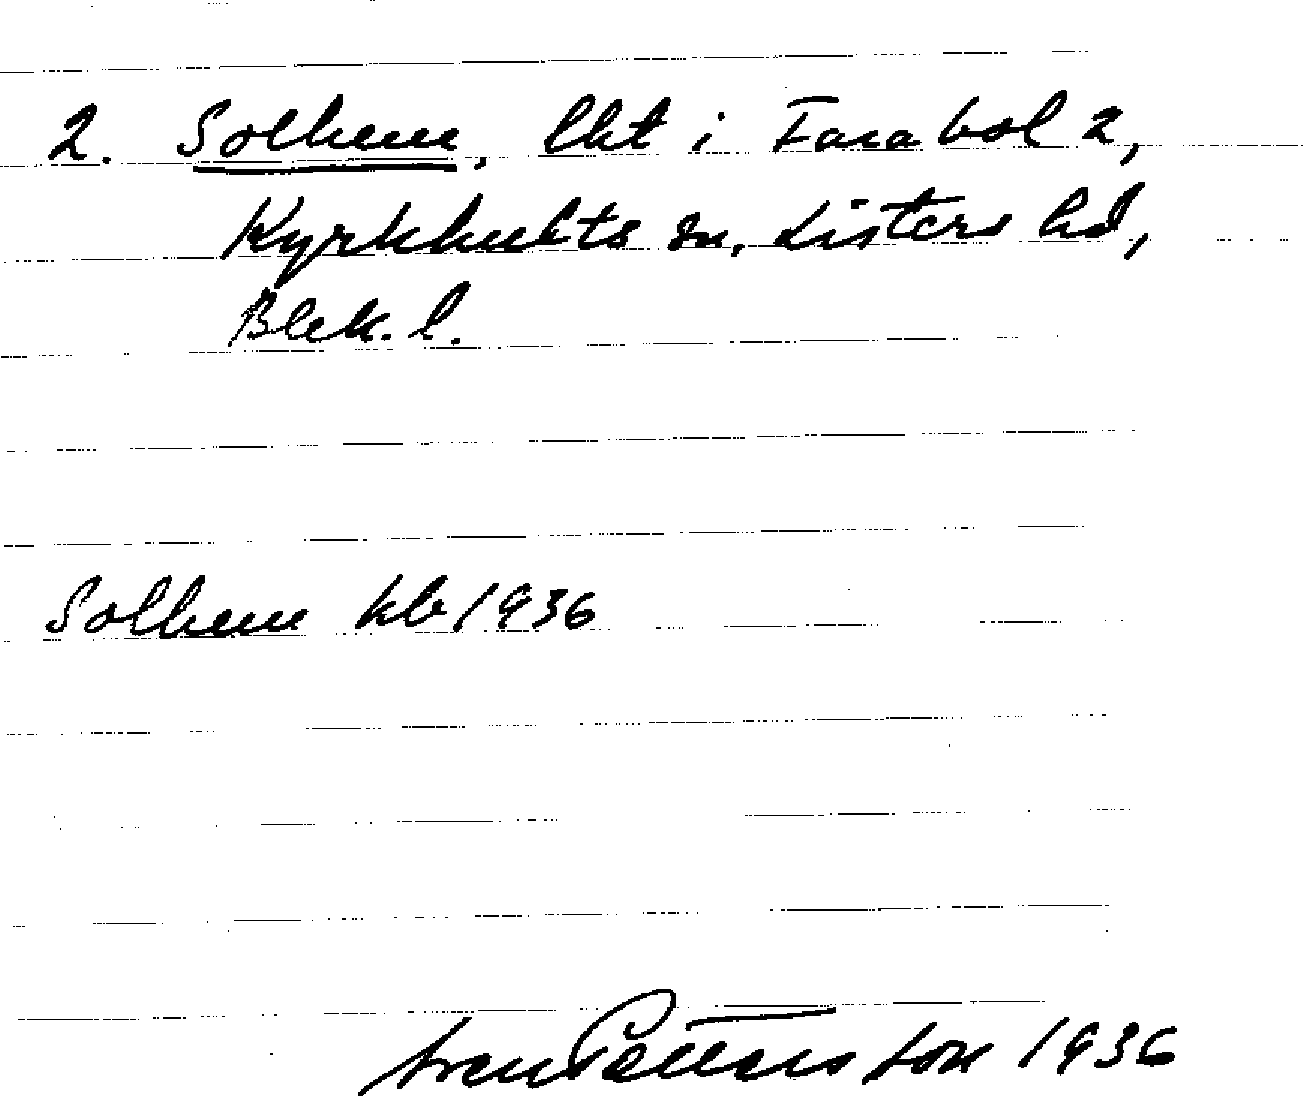 2. Solhem, lht i Farabol 2,
Kyrkhults sn, Listers hd,
Blek. l.
Solhem kb 1936
Pettersson 1936